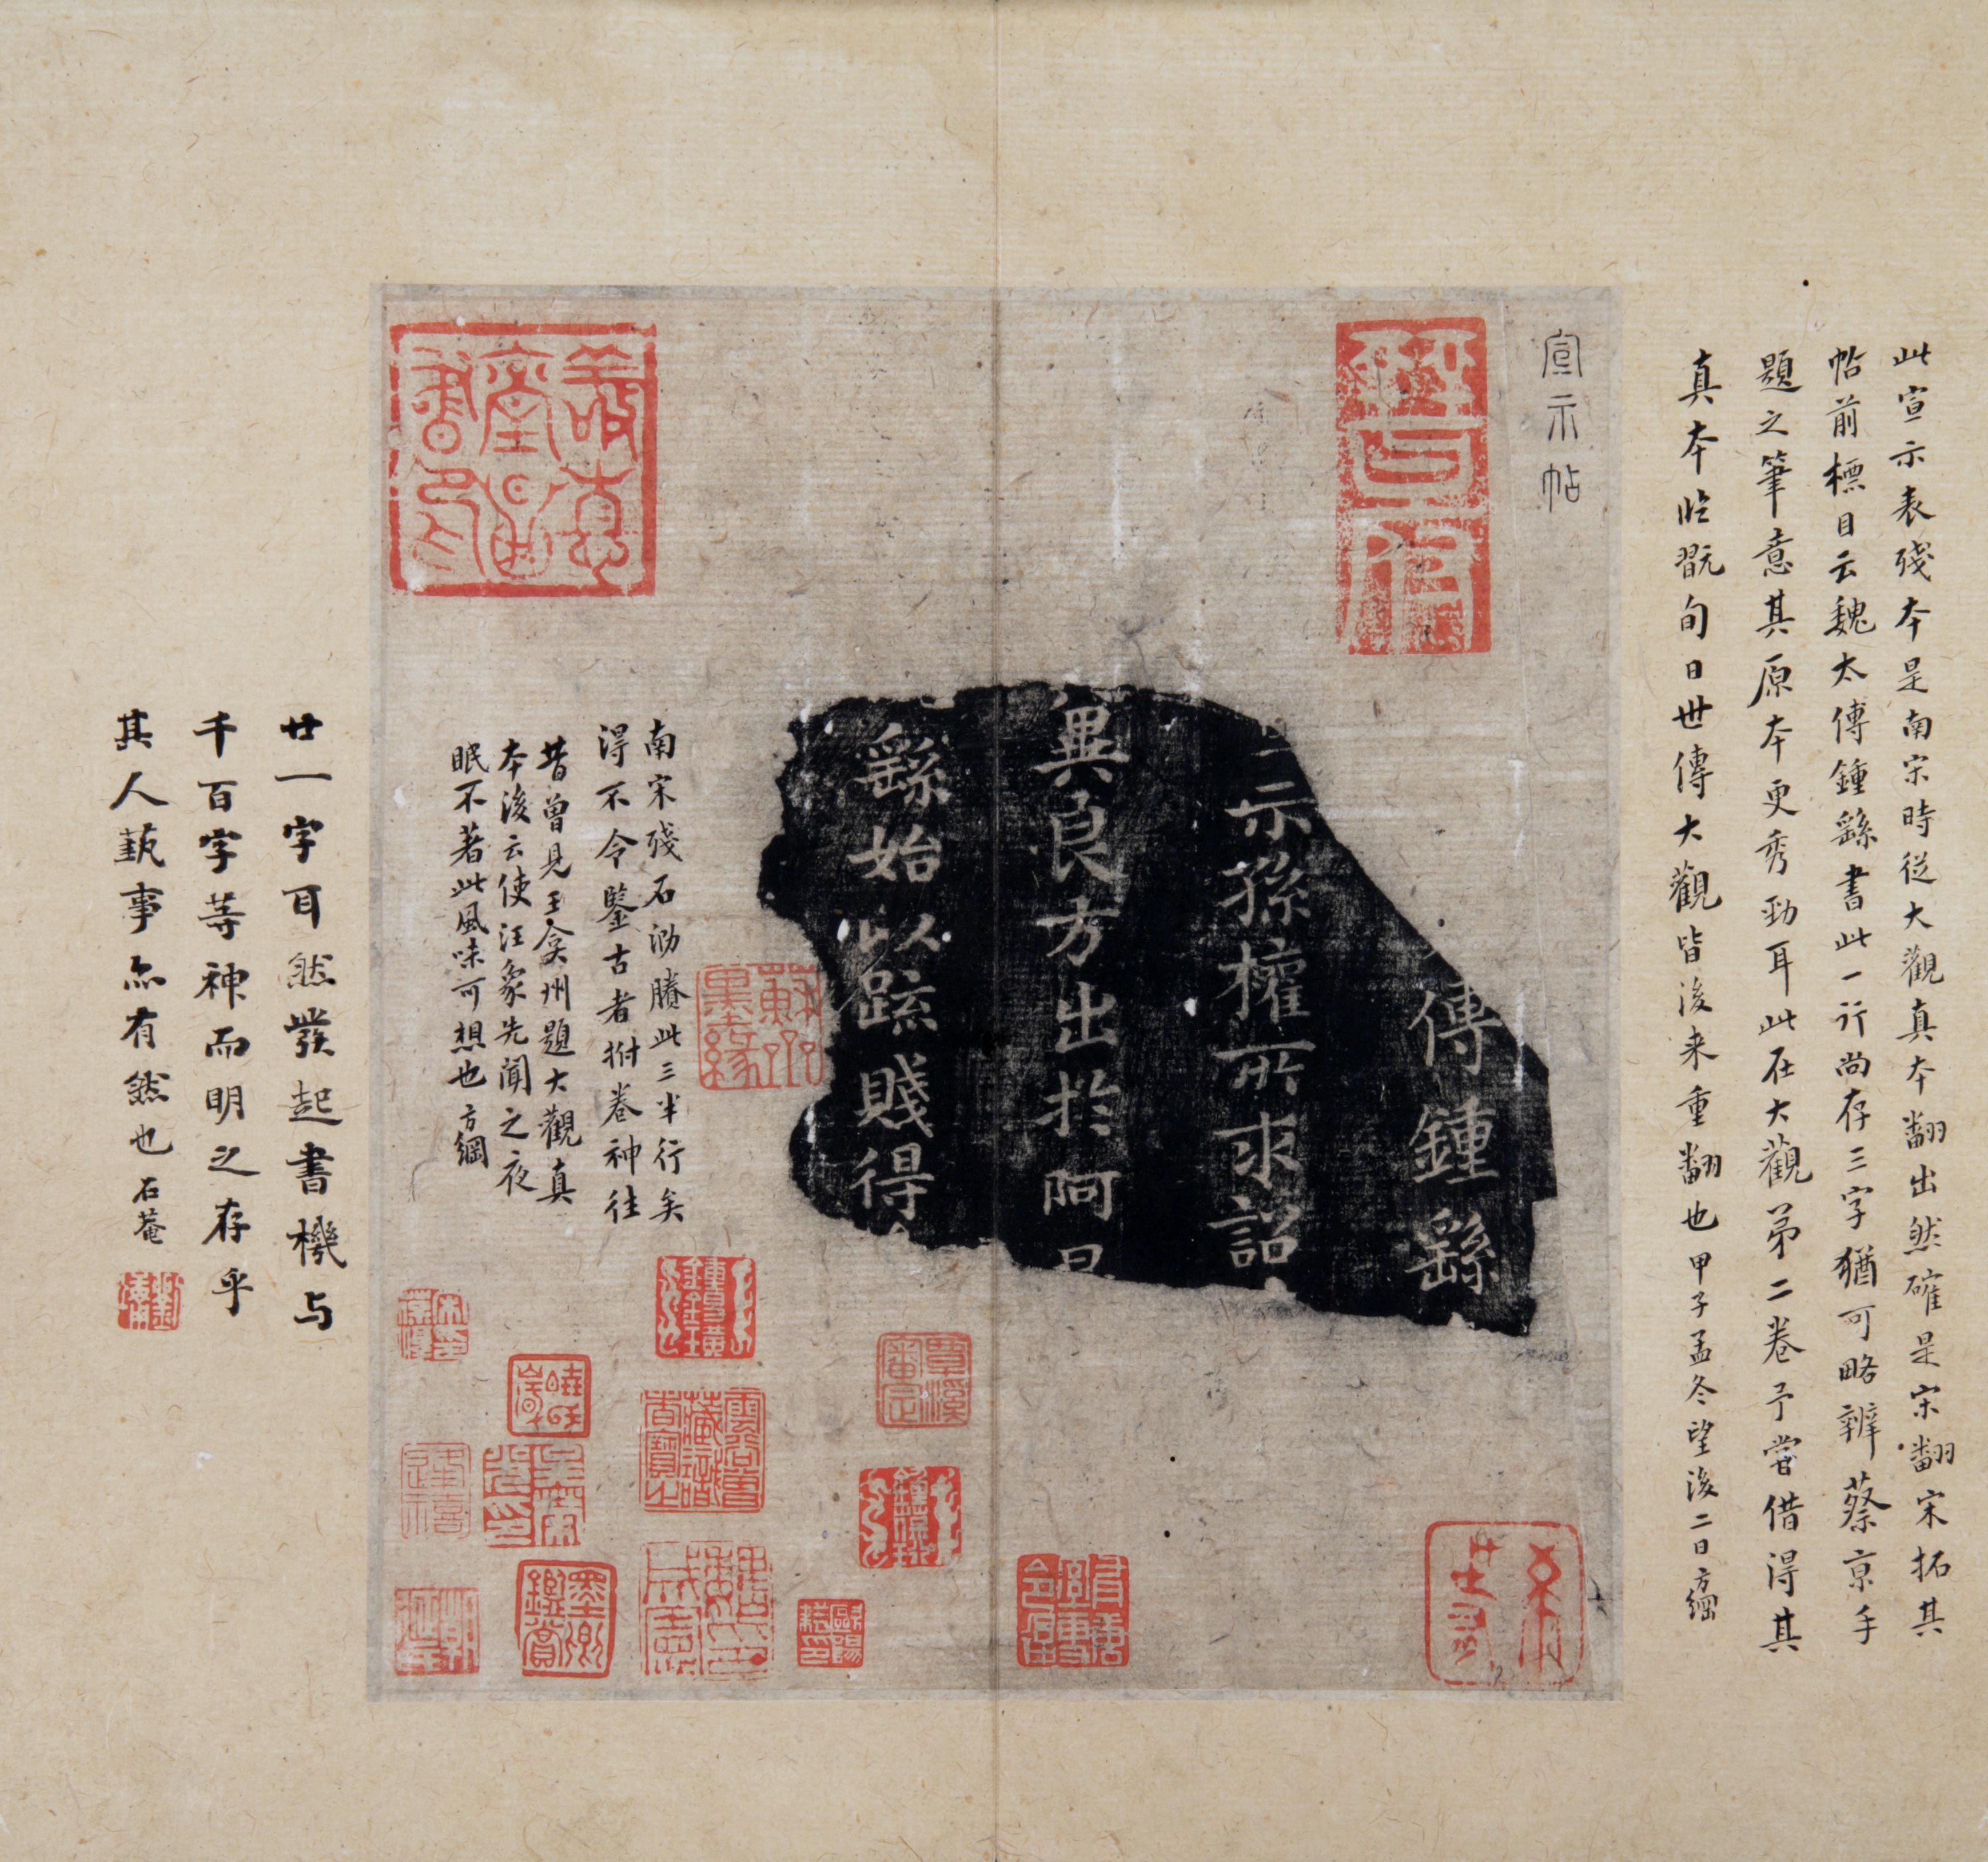 此宣示表殘本是南宋時從大觀真本翻出然確是宋翻宋拓其
帖前標目云魏太傅鍾繇書此一行尚存三字猶可略辨蔡京手
題之筆意其原本更秀勁耳此在大觀弟二卷予嘗借得其
真本臨翫旬日世傳大觀皆後来重翻也甲子孟冬望後二日方綱
宣示帖
傳鍾繇
示孫權所求詔
異良方出於阿是
繇始以疏賤得
南宋殘石泐賸此三半行矣
得不令鑒古者拊卷神往
昔曾見王弇州題大觀真
本後云使汪象先聞之夜
眠不著此風味可想也方綱
蘇齋墨緣
廿一字耳然發起書機与
千百字等神而明之存乎
其人蓺事亦有然也石菴